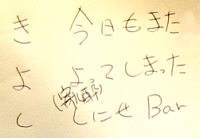 き 今日もまた
よ よってしまった
し (寄酔) しにせ Bar